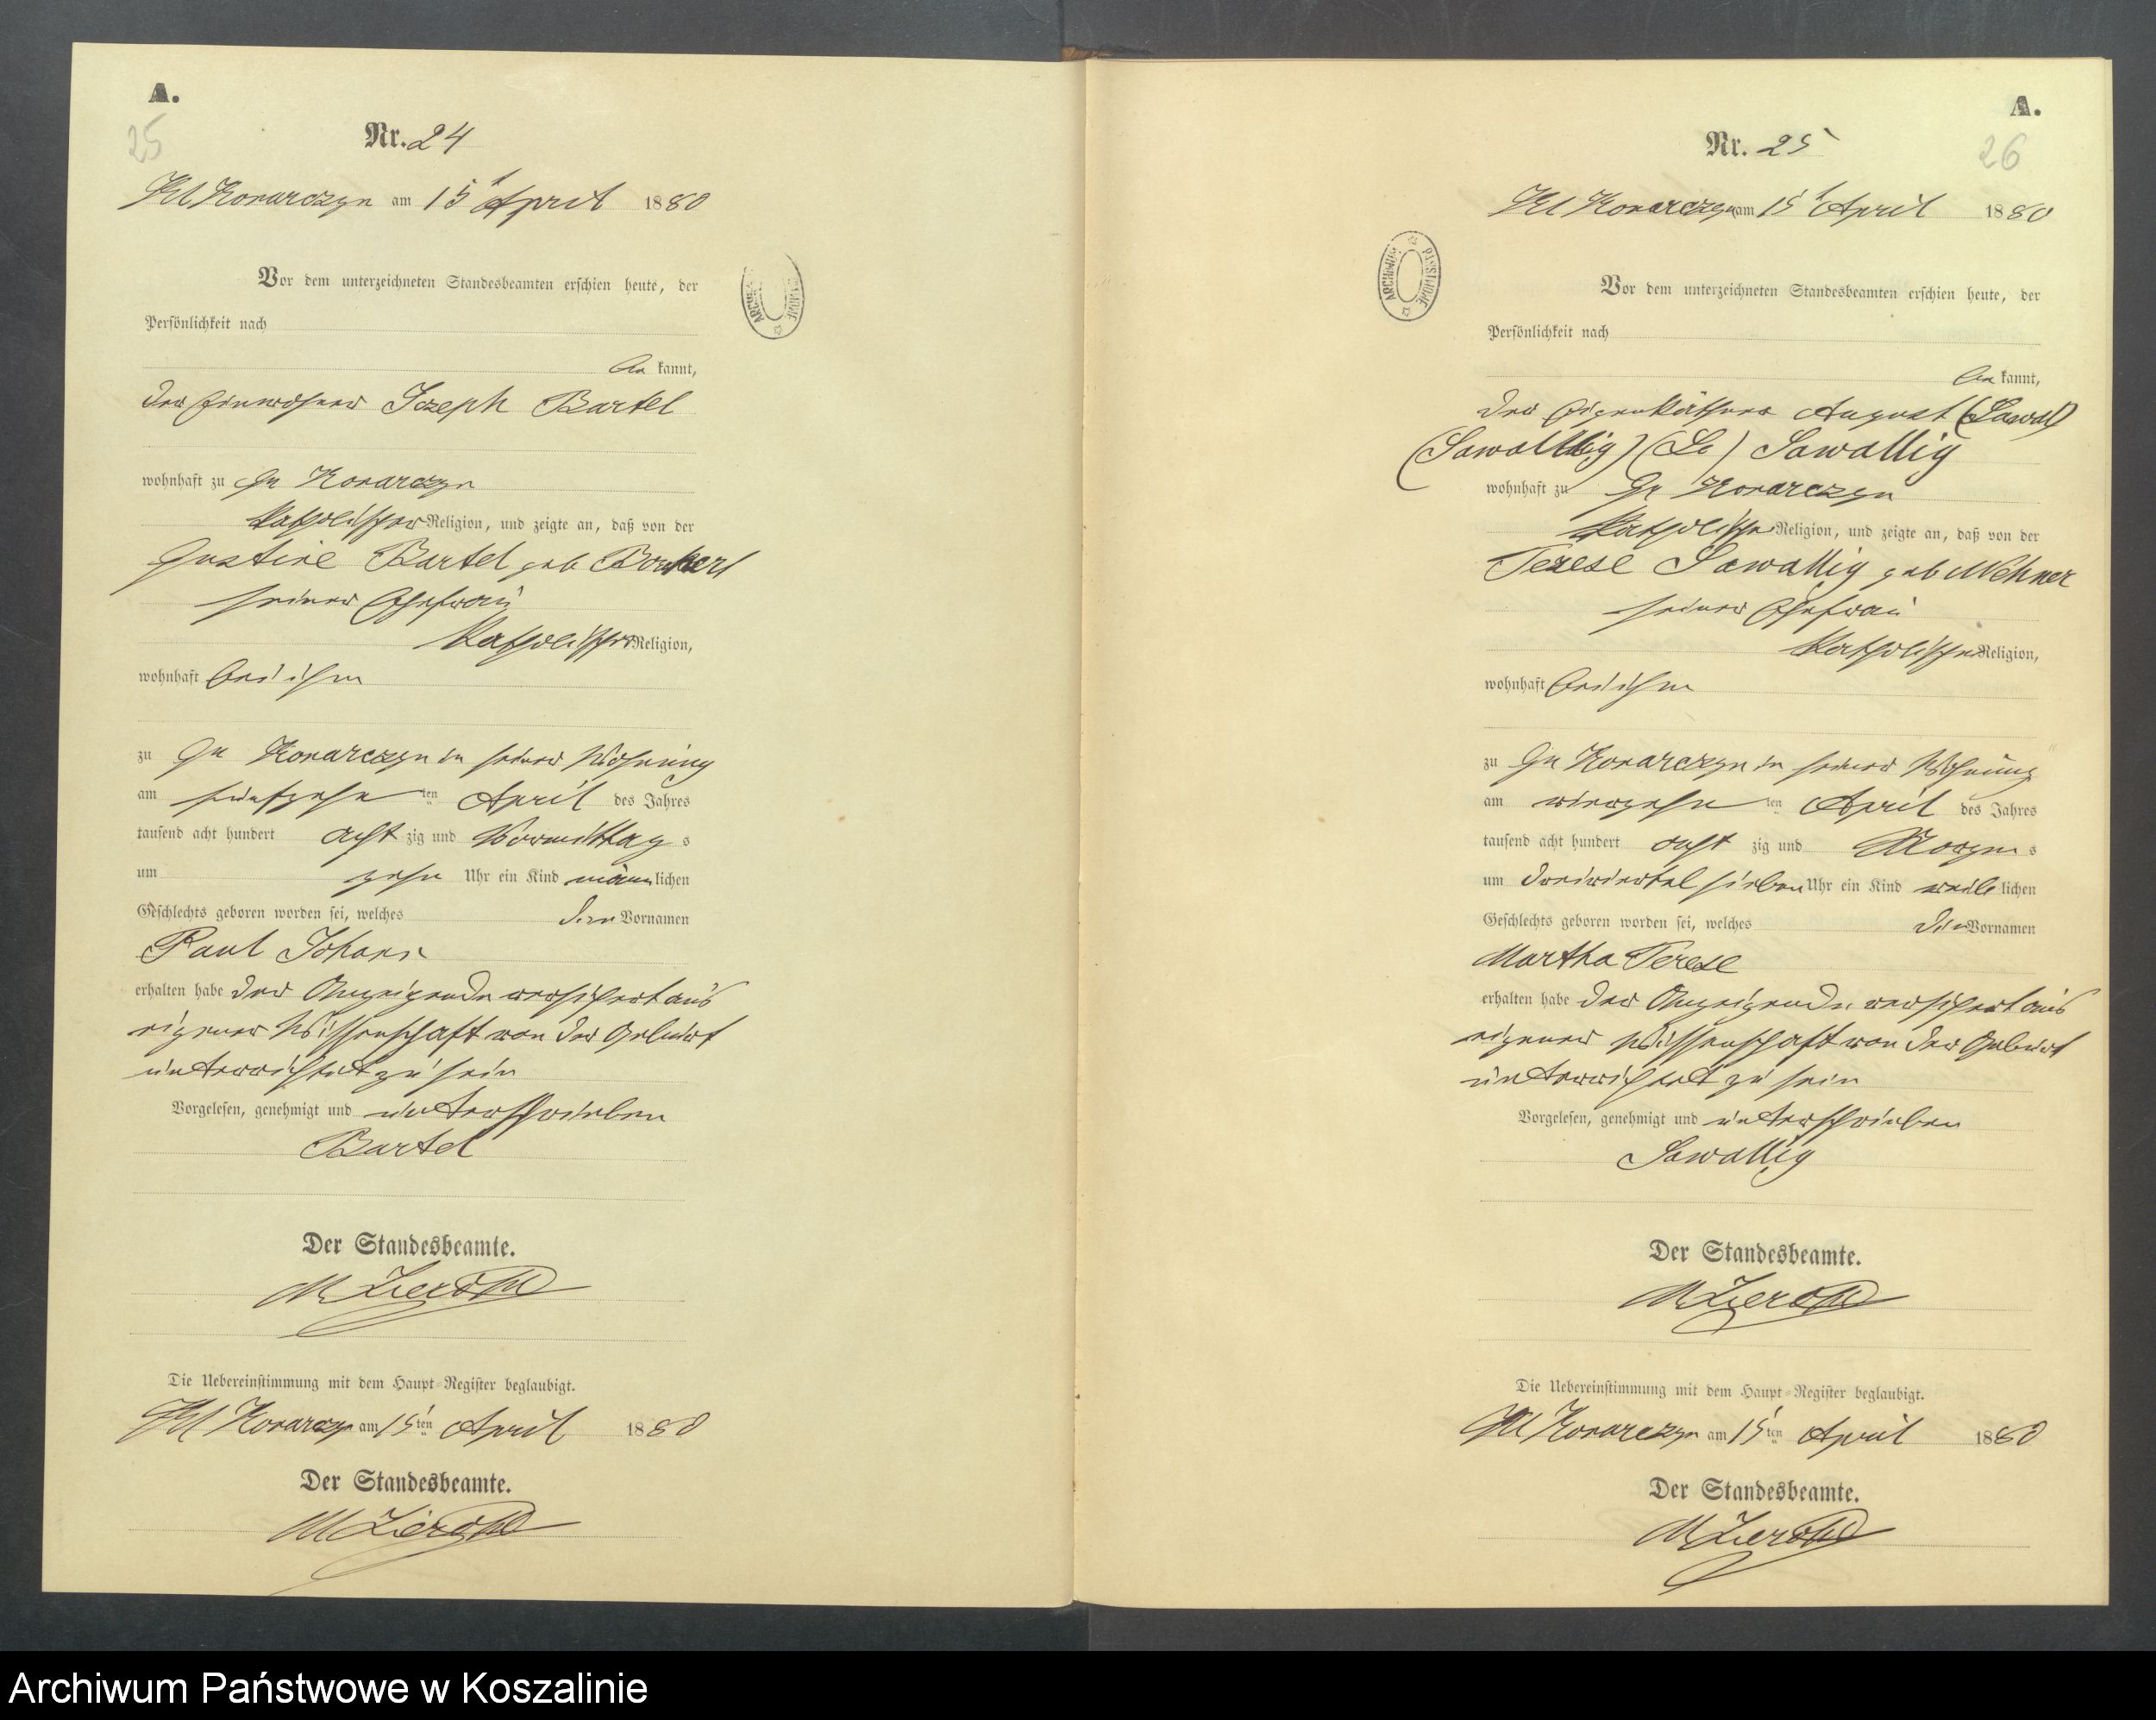 A.
25
Nr. 24
Kl Konarczyn am 15t April 1880
Vor dem unterzeichneten Standesbeamten erschien heute, der
Persönlichkeit nach
be kannt,
der Einwohner Joseph Bartel
wohnhaft zu Gr Konarczyn
katholischer Religion, und zeigte an, daß von der
Justine Bartel geb
seiner Ehefrau
katholischer Religion,
wohnhaft bei ihm
zu Gr Konarczyn in seiner Wohnung
am fünfzehnten April des Jahres
tausend acht hundert achtzig und Vormittags
um zehn Uhr ein Kind männlichen
Geschlechts geboren worden sei, welches den Vornamen
Paul Johann
erhalten habe der Anzeigende versichert aus
eigener Wissenschaft von der Geburt
unterrichtet zu sein
Vorgelesen, genehmigt und unterschrieben
Bartel
Der Standesbeamte.
Die Uebereinstimmung mit dem Haupt-Register beglaubigt.
Kl Konarczyn am 15ten April 1880
Der Standesbeamte.
A.
26
Nr. 25
Kl Konarczyn am 15t April 1880
ARCHIWUM PAŃSTWOWE
Vor dem unterzeichneten Standesbeamten erschien heute, der
Persönlichkeit nach
be kannt,
der Eigenkäthner August (Sawal)
(Sawallig) (Se) Sawallig
wohnhaft zu Gr Konarczyn
katholischer Religion, und zeigte an, daß von der
Terese Sawallig geb Mehner
seiner Ehefrau
katholischer Religion,
wohnhaft bei ihm
zu Gr Konarczyn in seiner Wohnung
am vierzehnten April des Jahres
tausend acht hundert achtzig und Morgens
um dreiviertel sieben Uhr ein Kind weiblichen
Geschlechts geboren worden sei, welches den Vornamen
Martha Terese
erhalten habe der Anzeigende versichert aus
eigener Wissenschaft von der Geburt
unterrichtet zu sein
Vorgelesen, genehmigt und unterschrieben
Sawallig
Der Standesbeamte.
Die Uebereinstimmung mit dem Haupt-Register beglaubigt.
Kl Konarczyn am 15ten April 1880
Der Standesbeamte.
Archiwum Państwowe w Koszalinie